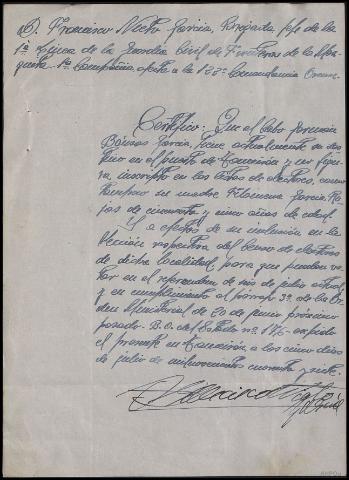 D. Francisco Nieto García, Brigada, jefe de la
1ª Línea de la Guardia Civil de Fronteras de la
1ª Compañía afecta a la 128ª Comandancia
Certifico: Que el Cabo
García, tiene actualmente su des
tino en el puesto de y no figu
ra inscripto en las listas de electores, como
tampoco su madre Filomena García Ro
jas de cincuenta y cinco años de edad.
Y a efectos de su inclusión en la
Sección respectiva del Censo de electores
de dicha localidad, para que puedan vo
tar en el referendum de seis de julio actual,
y en cumplimiento al párrafo 3º de la Or
den Ministerial de 20 de junio próximo
pasado. B.O. del Estado nº 176 - expido
el presente en a los cinco días
de julio de mil novecientos cuarenta y siete.